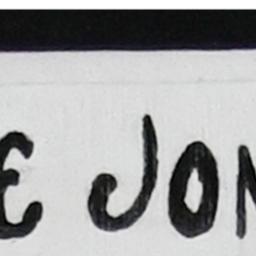 E JON